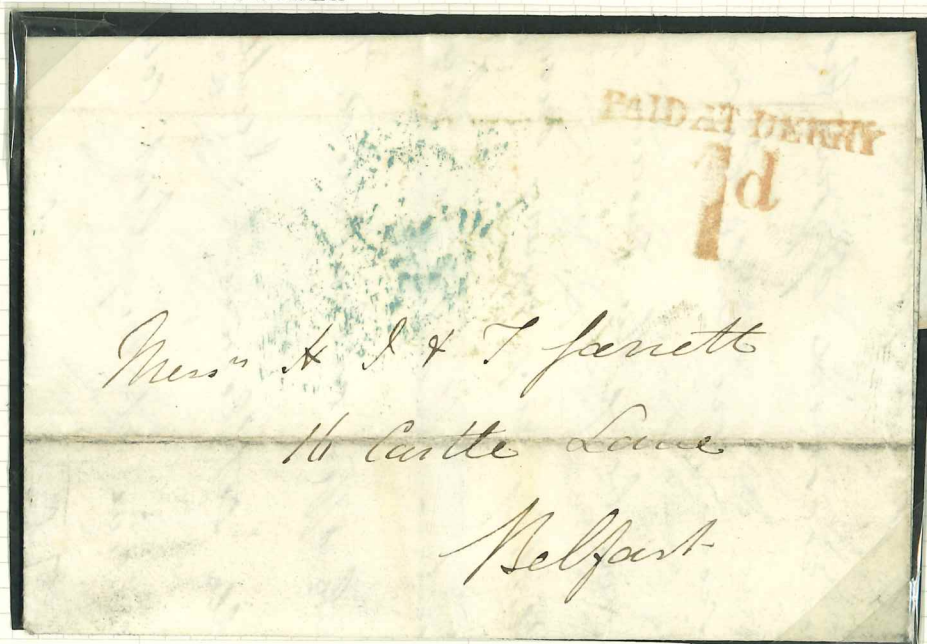 PAID AT DERRY
1d
Messrs H J & T Garrett
16 Castle Lane
Belfast